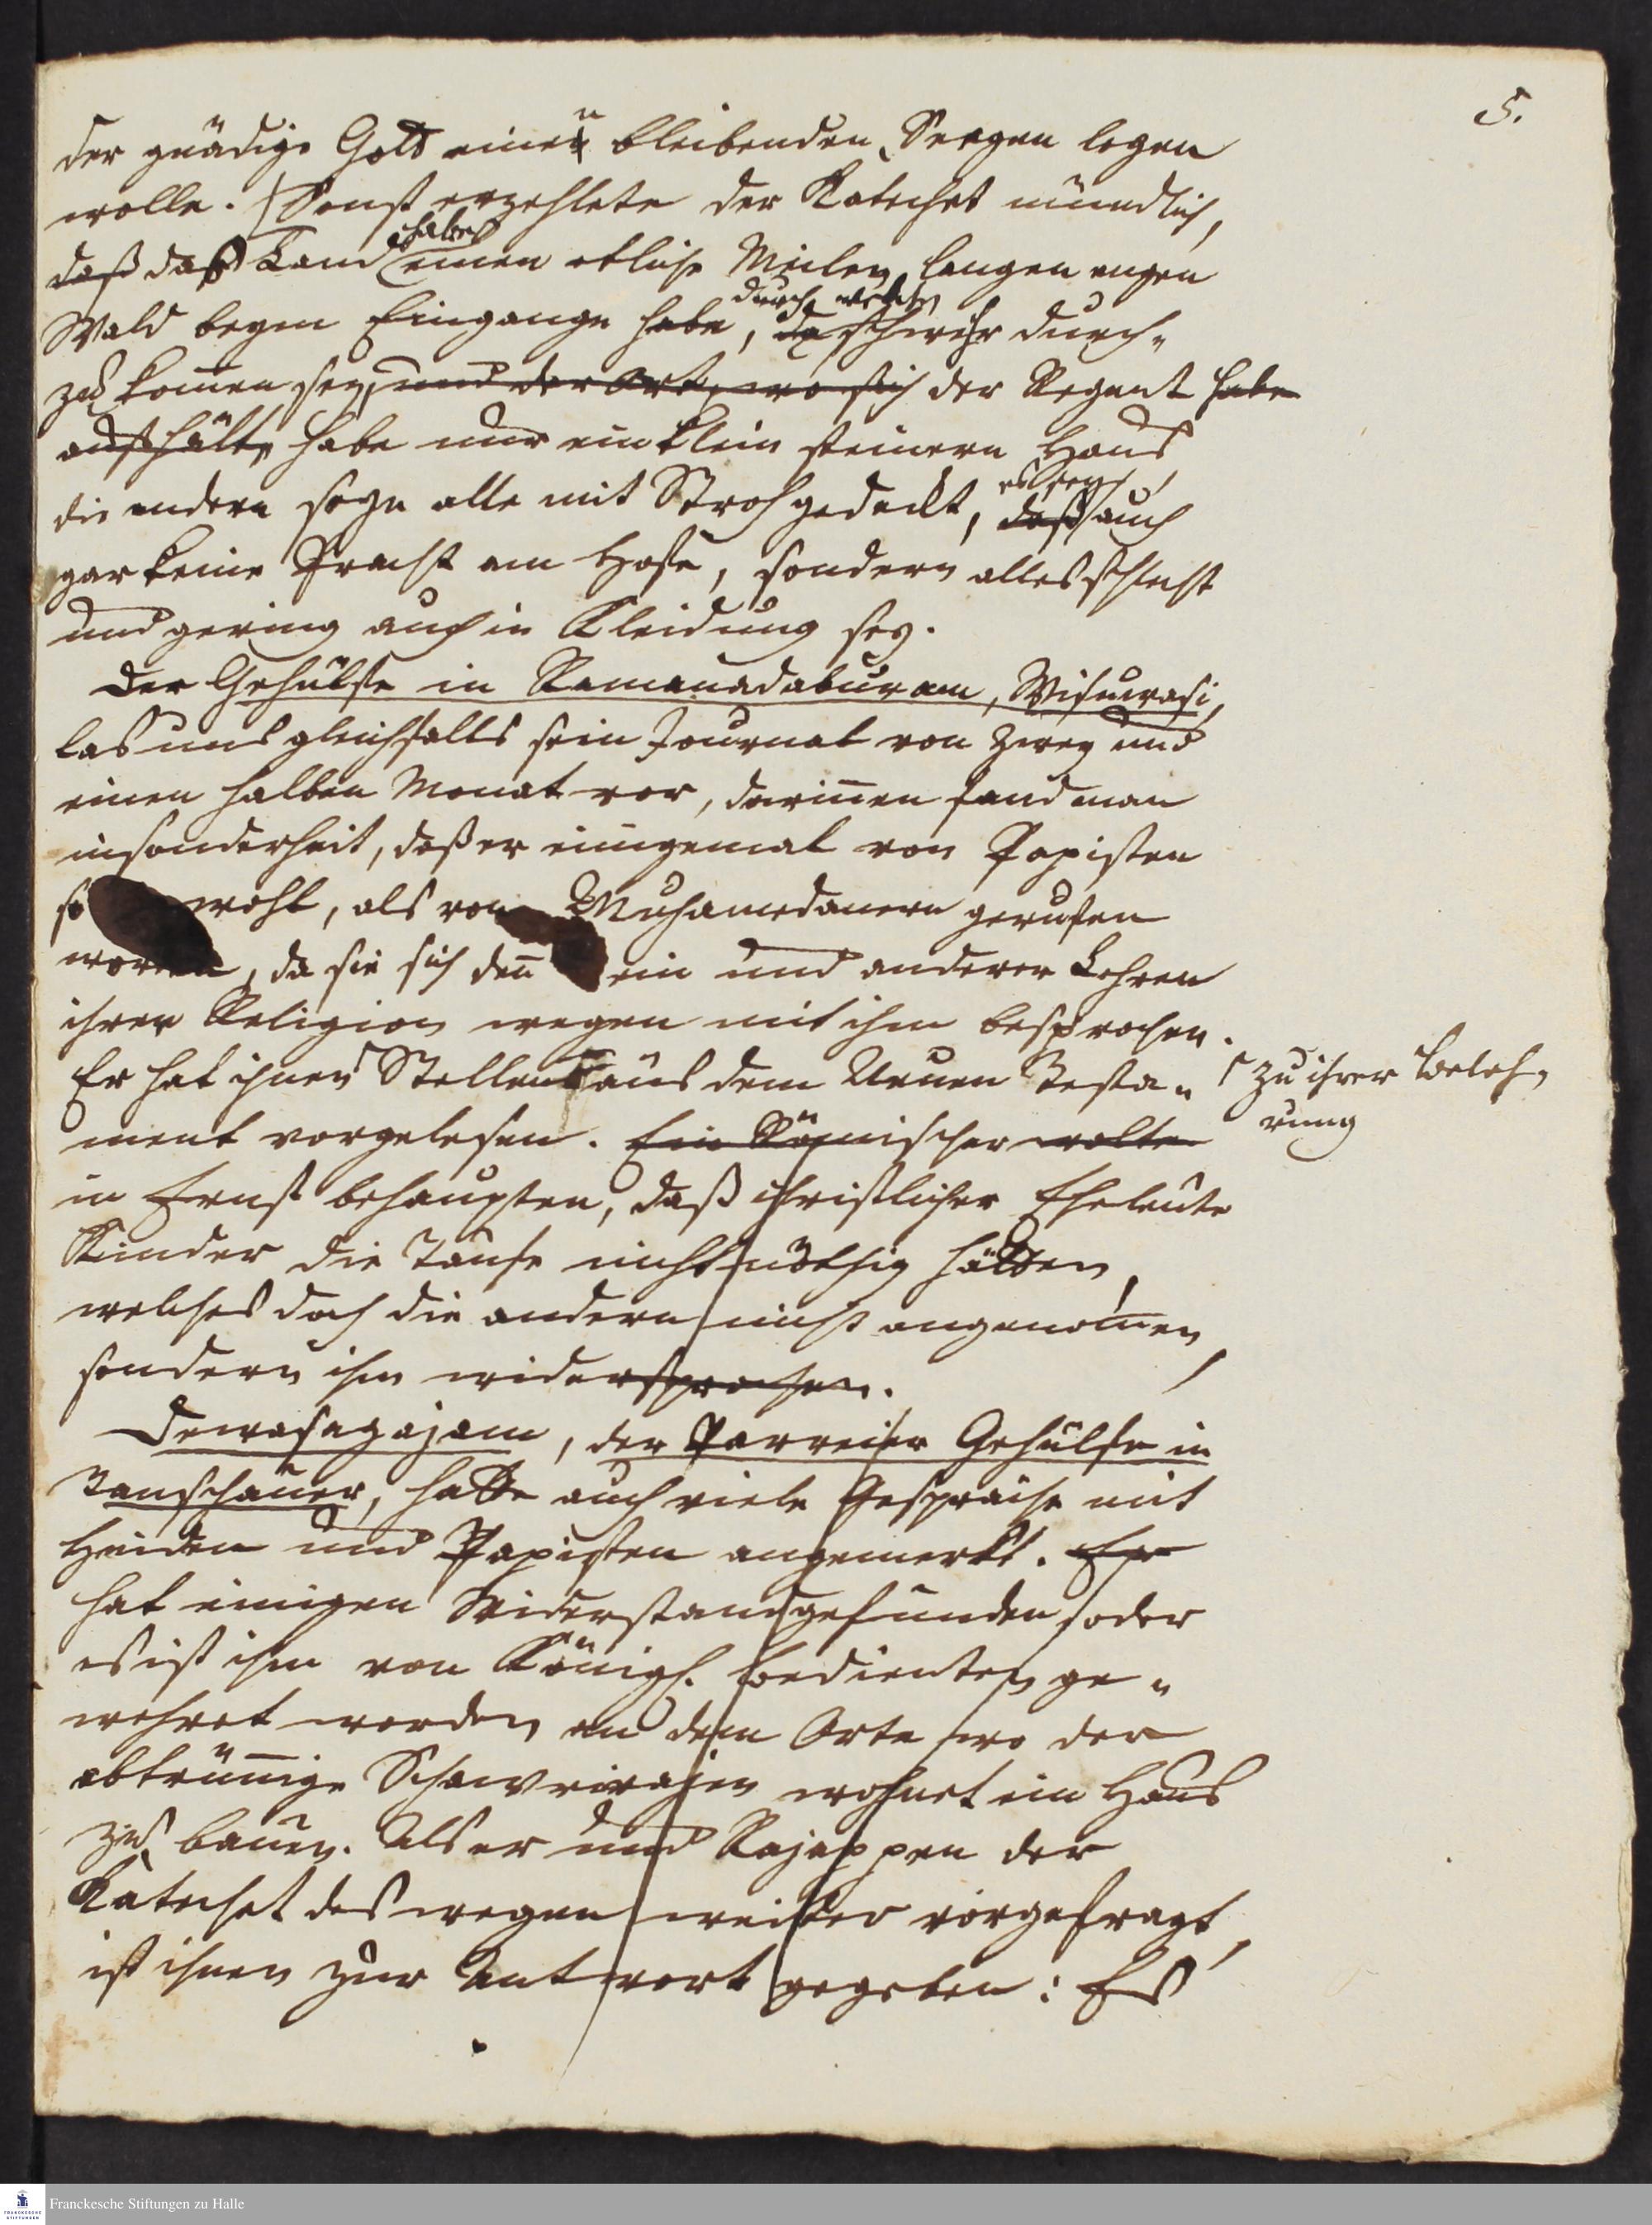 5.
der gnädige Gott einen bleibenden Seegen legen
wolle. Sonst erzehlete der Katechet mündlich,
daß das Land habe einen etliche Meilen langen engen
Wald beym Eingange habe, durch welchen da schwehr durch-
zu kom̄en sey, und der Ort, wo sich der Regent habe
aufhält, habe nur ein klein steinern Haus
die andern seyn alle mit Stroh gedeckt, daß auch
gar keine Pracht am Hofe, sondern alles schlecht
und gering auch in Kleidung sey.
Der Gehülfe in Ramanadaburam, Wisuwasi,
las uns gleichfalls sein Journal von zwey und
einen halben Monat vor, darin̄en fand man
insonderheit, daß er einigemal von Papisten
so wohl, als von Muhamedanern gerufen
worden, da sie sich den̄ ein und anderer Lehren
ihrer Religion wegen mit ihm besprochen.
Er hat ihnen Stellen aus dem Neuen Testa-
zu ihrer Beleh-
rung
ment vorgelesen. Ein Römischer wolte
in Ernst behaupten, daß christlicher Eheleute
Kinder die Taufe nicht nöthig hätten,
welches doch die andern nicht angenom̄en,
sondern ihm widersprochen.
Dewasagajam, der Parreier Gehülfe in
Tanschauer, hatte auch viele Gespräche mit
Heiden und Papisten angemerkt. Er
hat einigen Widerstand gefunden, oder
es ist ihm von Königl. Bedienten ge-
wehret worden an dem Orte wo der
abtrün̄ige Schawrirajen wohnet ein Haus
zu bauen. Als er und Rajappen der
Katechet des wegen weiter vorgefragt,
ist ihnen zur Antwort gegeben: Es
Franckesche Stiftungen zu Halle